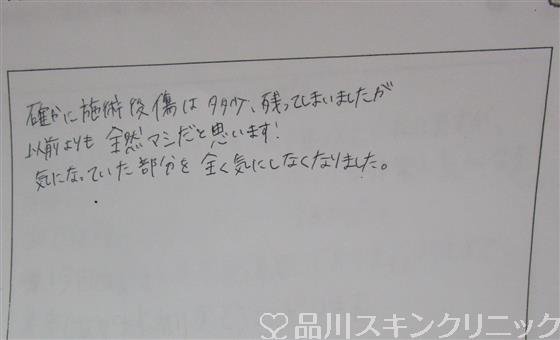 確かに施術後傷は多少、残ってしまいましたが
以前よりも全然マシだと思います!
気になっていた部分を全く気にしなくなりました。
品川スキンクリニック